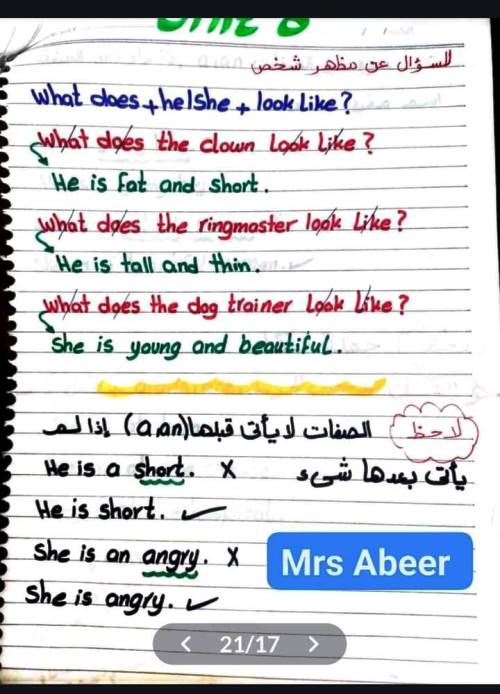 Unit 8
للسؤال عن مظهر شخص
What does + he/she + look like?
What does the clown look like?
He is fat and short.
What does the ringmaster look like?
He is tall and thin.
What does the dog trainer look like?
She is young and beautiful.
لاحظ الصفات لا يأتى قبلها (a, an) إذا لم
يأتى بعدها شىء
He is a short. X
He is short. ✓
She is an angry. X
Mrs Abeer
She is angry. ✓
< 21/17 >